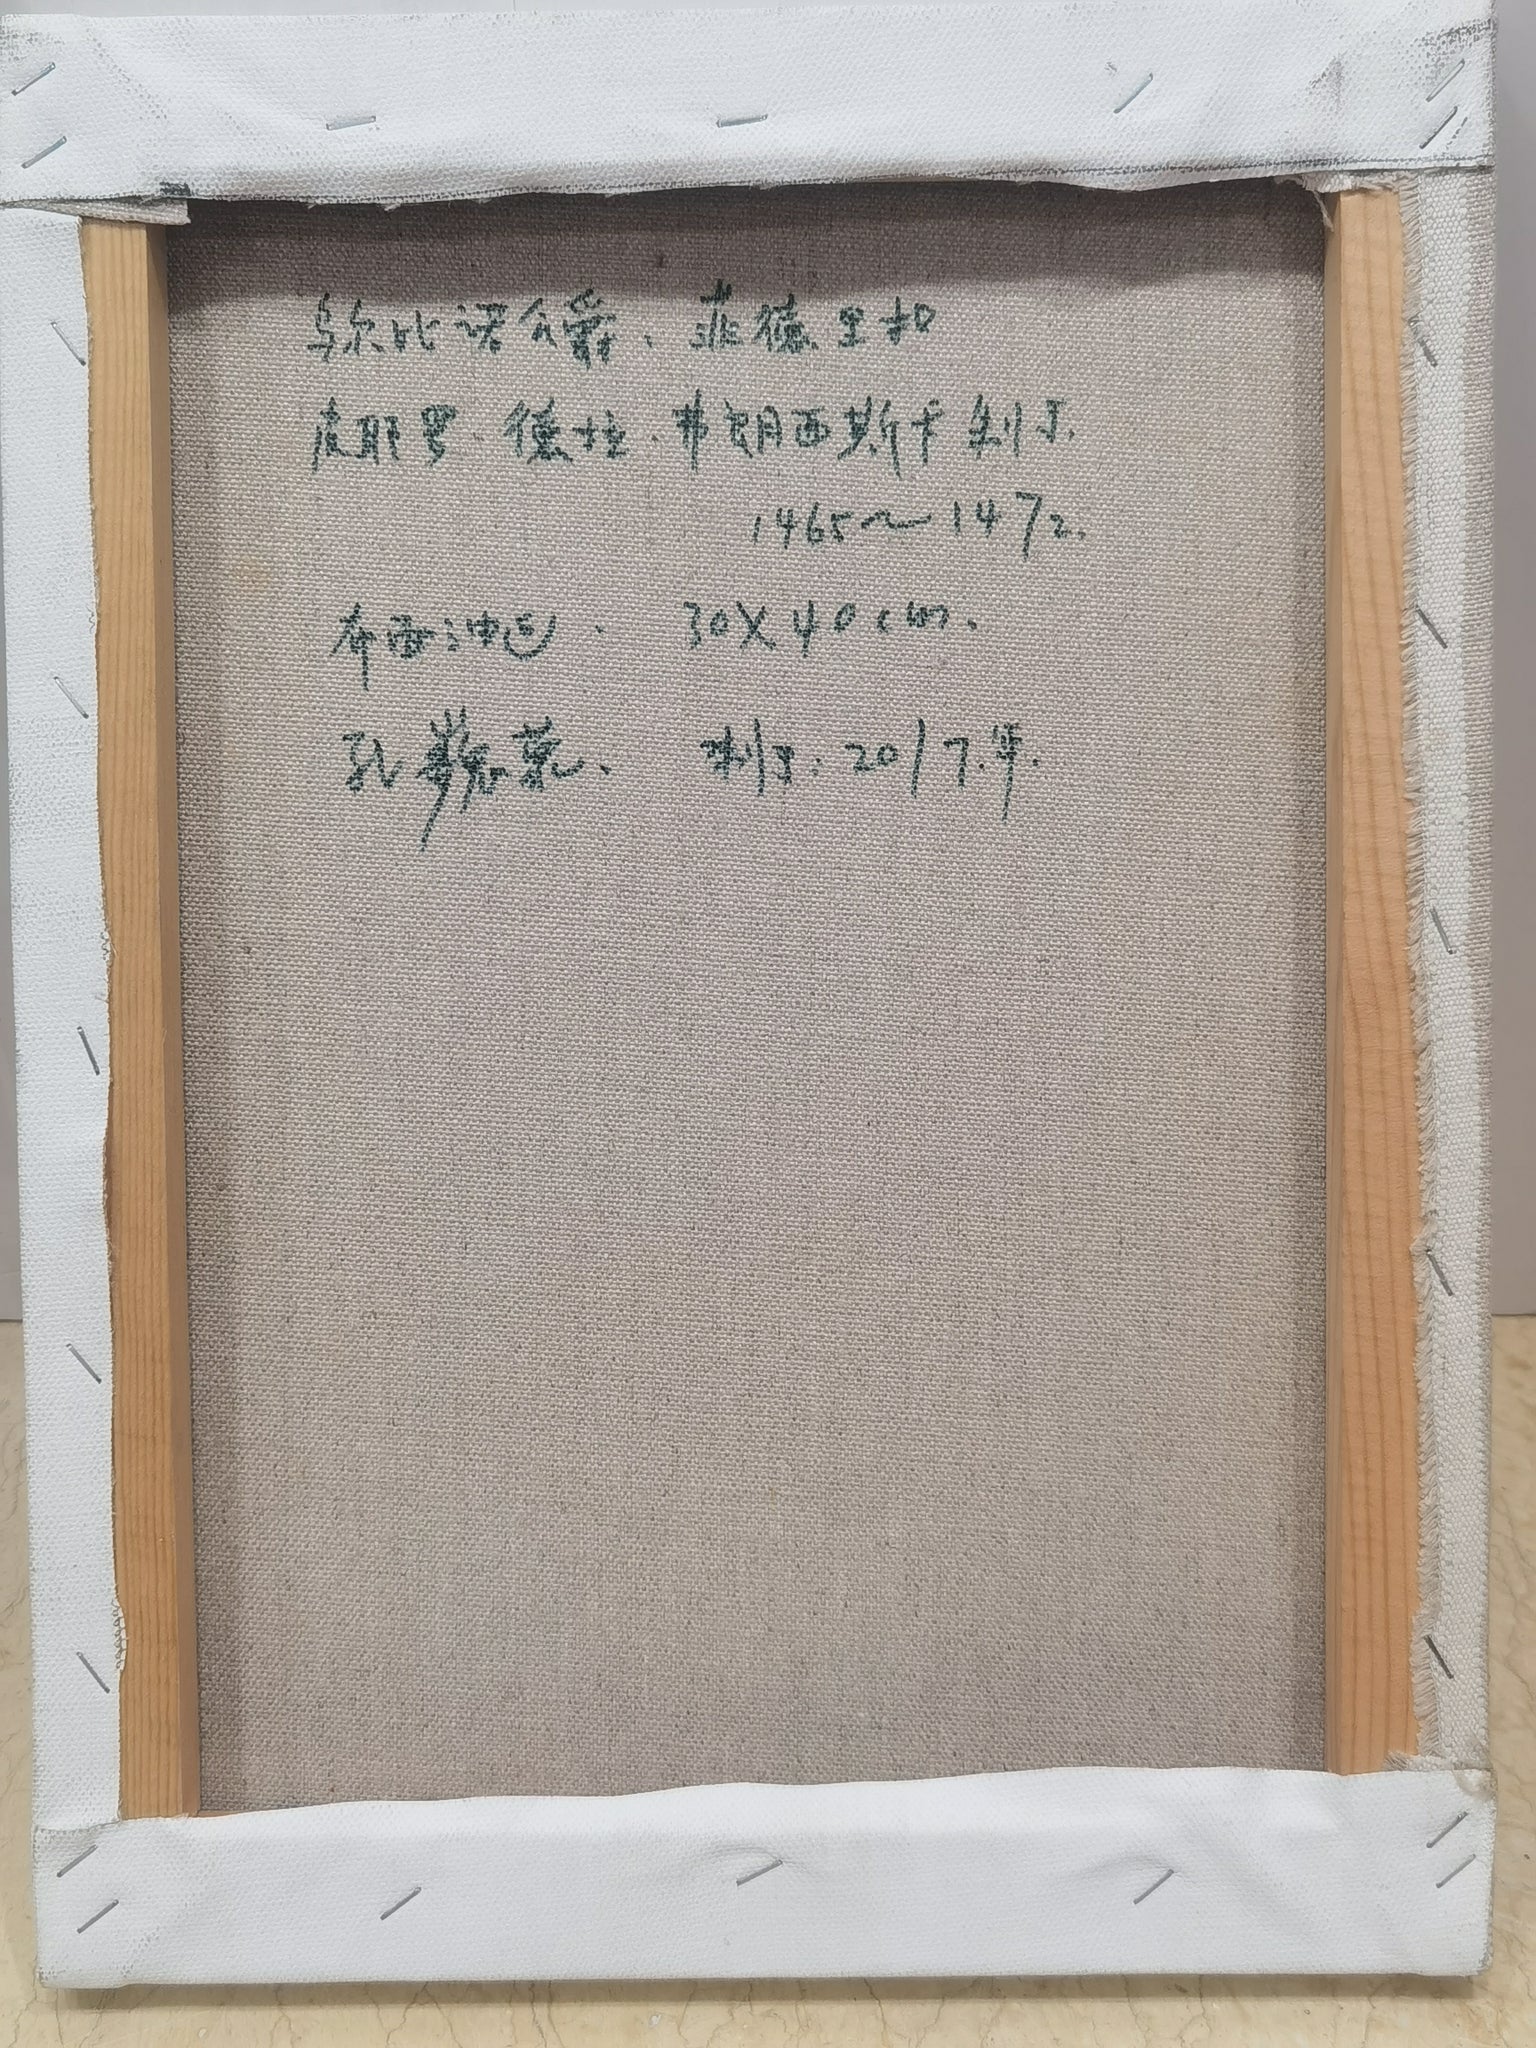 乌尔比诺公爵、菲德里扣
皮耶罗.德拉.弗朗西斯卡制于.
1465～1472.
布面油色. 30X40cm.
孔 制于:2017.年.